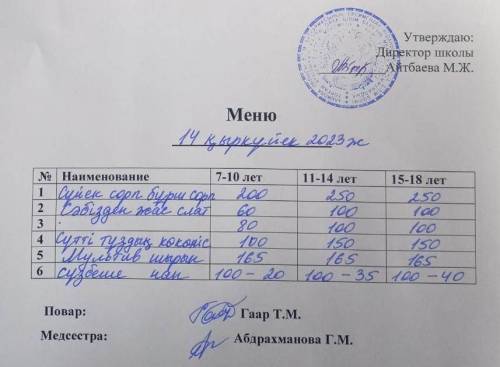 Утверждаю:
Директор школы
Айтбаева М.Ж.
Меню
14 қыркүйек 2023ж
№ Наименование 7-10 лет 11-14 лет 15-18 лет
1 Сүйек сорп бұрш сорп 200 250 250
2 Сәбізден жас слат 60 100 100
3 80 100 100
4 Сүтті тұздық 100 150 150
5 Мультив шырын 165 165 165
6 сүзбеше нан 100-20 100-35 100-40
Повар: Гаар Т.М.
Медсестра: Абдрахманова Г.М.